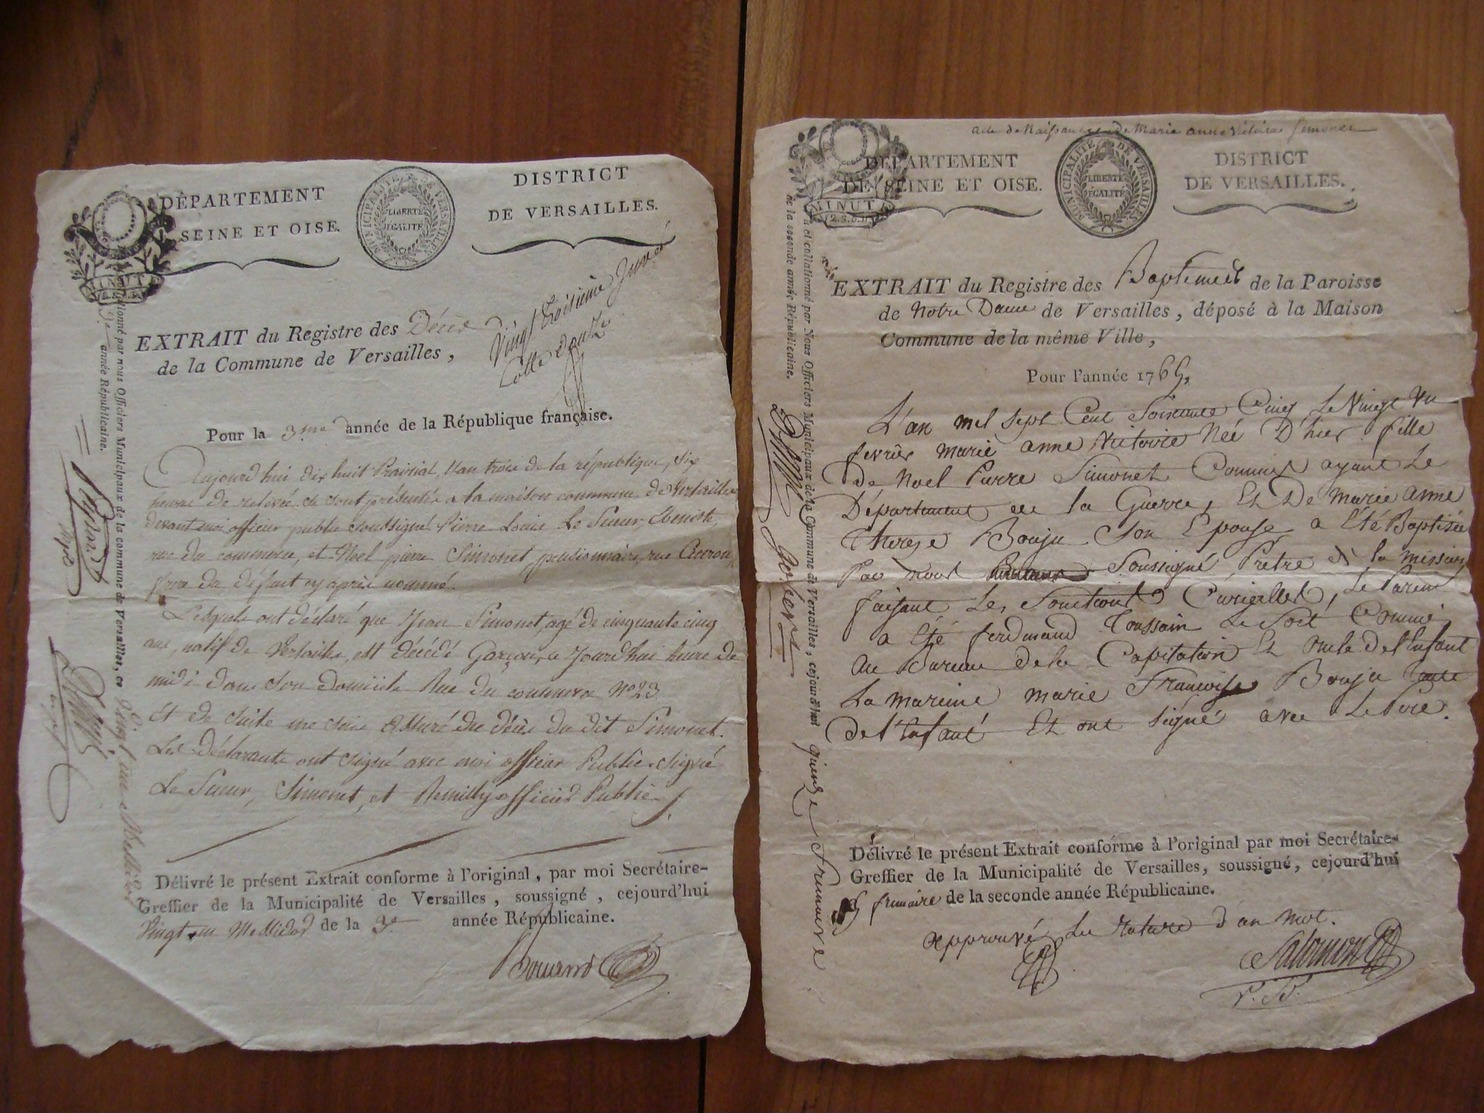 DÉPARTEMENT
SEINE ET OISE.
MUNICIPALITÉ DE VERSAILLES
LIBERTÉ
EGALITÉ
DISTRICT
DE VERSAILLES.
MINUTE
Vingt troisieme
EXTRAIT du Registre des Décès
de la Commune de Versailles,
Pour la 3me année de la République française.
Aujourd'hui dix huit Prairial l'an trois de la république, six
heures de relevée se sont présentés a la maison commune de Versailles
devant moi officier public soussigné Pierre Louis Le Sueur, Ebeniste,
rue du commerce, et Noel pierre Simonet, pensionnaire, rue
frere du défunt cy après nommé.
Lesquels ont déclaré que Jean Simonet, agé de cinquante cinq
ans, natif de Versailles, est décédé Garçon, ce Jourd'hui heure de
midi dans son domicile Rue du commerce No 23
Et de suite me suis assuré du décès du dit Simonet.
Les Déclarants ont signé avec moi officier Public. Signé
Le Sueur, Simonet, et Remilly officier Public
Délivré le présent Extrait conforme à l'original, par moi Secrétaire-
Greffier de la Municipalité de Versailles, soussigné, cejourd'hui
Vingt un Messidor de la 3e année Républicaine.
tionné par nous Officiers Municipaux de la commune de Versailles, ce Vingt un Messidor
3e année Républicaine.
acte de Naissance de Marie anne Victoire Simonet
DÉPARTEMENT
DE SEINE ET OISE.
MUNICIPALITÉ DE VERSAILLES
LIBERTÉ
EGALITÉ
DISTRICT
DE VERSAILLES.
MINUTE
EXTRAIT du Registre des Baptemes de la Paroisse
de Notre Dame de Versailles, déposé à la Maison
Commune de la même Ville,
Pour l'année 1765,
L'an mil sept Cent Soixante Cinq Le Vingt un
fevrier marie anne Victoire Née D'hier fille
de Noel Pierre Simonet Commis ayant Le
Département de la Guerre, Et De Marie anne
Therese Bouju Son Epouse a Eté Baptisée
Par nous Soussigné Prêtre de la mission
faisant Les fonctions Curialles, Le Parein
a Eté ferdinand Toussain Le Commis
Au Bureau de la Capitation Et oncle de l'Enfant
La Mareine marie françoise Bouju tante
de l'Enfant Et ont signé avec Le Pere.
Délivré le présent Extrait conforme à l'original par moi Secrétaire-
Greffier de la Municipalité de Versailles, soussigné, cejourd'hui
frimaire de la seconde année Républicaine.
Approuvé La rature d'un mot.
Salomon
et collationné par Nous Officiers Municipaux de la Commune de Versailles, cejourd'hui quinze frimaire
de la seconde année Républicaine.